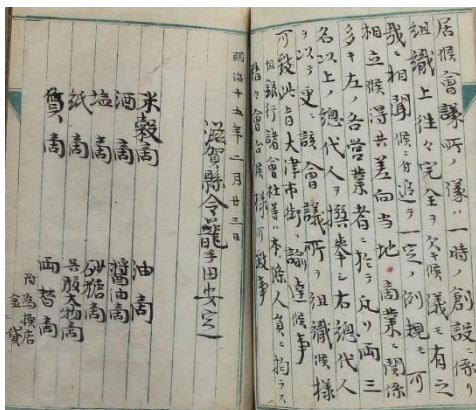 居候會議所ノ儀ハ時ノ創設ニ係リ
組織上往々完全ヲ欠キ候儀モ有之
哉ニ相聞候ニ付追テ一定ノ例規モ可
相立候得共差向当地商業ニ関係
多キ左ノ各営業者ニ於テ凡リ両三
名以上ノ總代人ヲ撰挙シ右總代人
ヲ以テ更ニ該會議所ヲ組織候様
可致此旨大津市街ニ諭達候事
但銀行諸會社等ハ本條人員ニ拘ラス
精々會合候様可致事
明治十五年二月廿三日
滋賀縣令籠手田安定
米穀商 油商
酒商 醬油商
塩商 砂糖商
紙商 呉服太物商
質商 両替商
附為換店
金貸